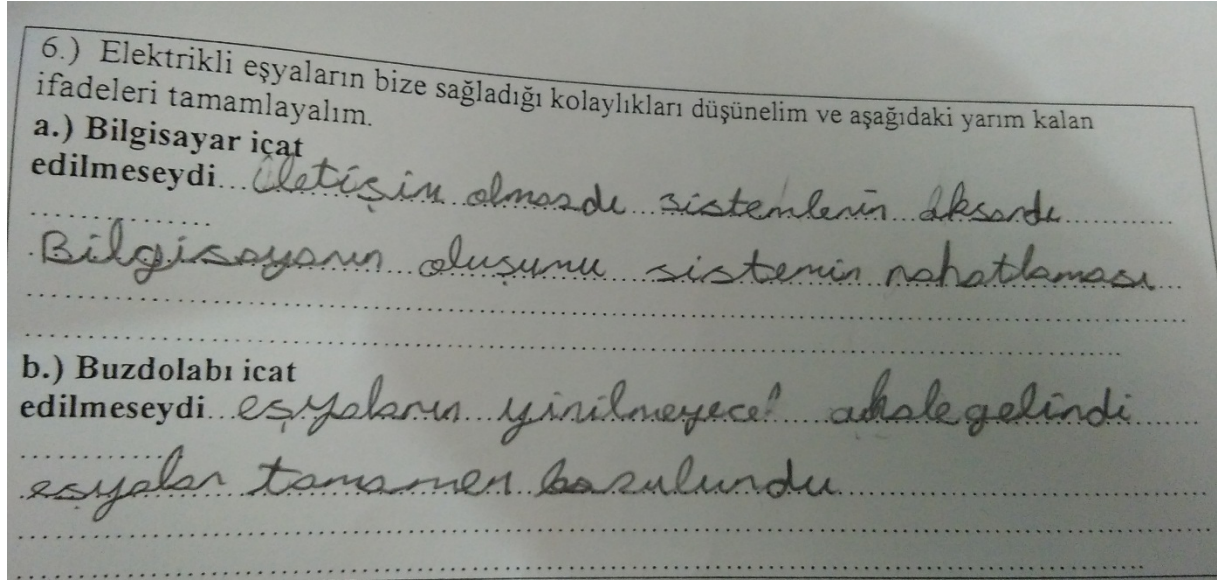 6.) Elektrikli eşyaların bize sağladığı kolaylıkları düşünelim ve aşağıdaki yarım kalan
ifadeleri tamamlayalım.
a.) Bilgisayar icat
edilmeseydi... iletişim olmazdı sistemlerin aksardı
Bilgisayarın oluşumu sistemin rahatlaması
b.) Buzdolabı icat
edilmeseydi... eşyaların yinilmeyecek ahale gelirdi
eşyalar tamamen bozulurdu